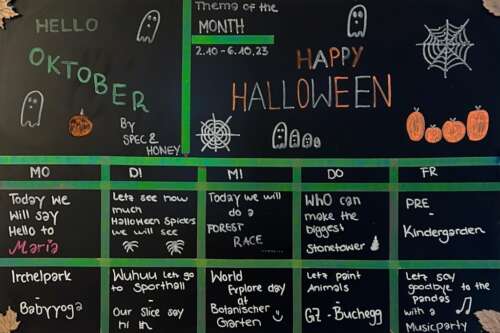 HELLO
OKTOBER
By
SPEC &
HONEY
Thema of the
MONTH
2.10 - 6.10.23
HAPPY
HALLOWEEN
MO
DI
MI
DO
FR
Today we
Will say
Hello to
Maria
Lets see how
much
Halloween Spiders
we will see
Today we will
do a
FOREST
RACE
WhO can
make the
biggest
Stonetower
PRE
-
Kindergarden
Irchelpark
-
Babyyoga
Wuhuu let go
to Sporthall
-
Our Slice say
hi
World
Explore day
at
Botanischer
Garten
Lets paint
Animals
GZ - Buchegg
Lets say
goodbye to the
Pandas
with a
Musicparty